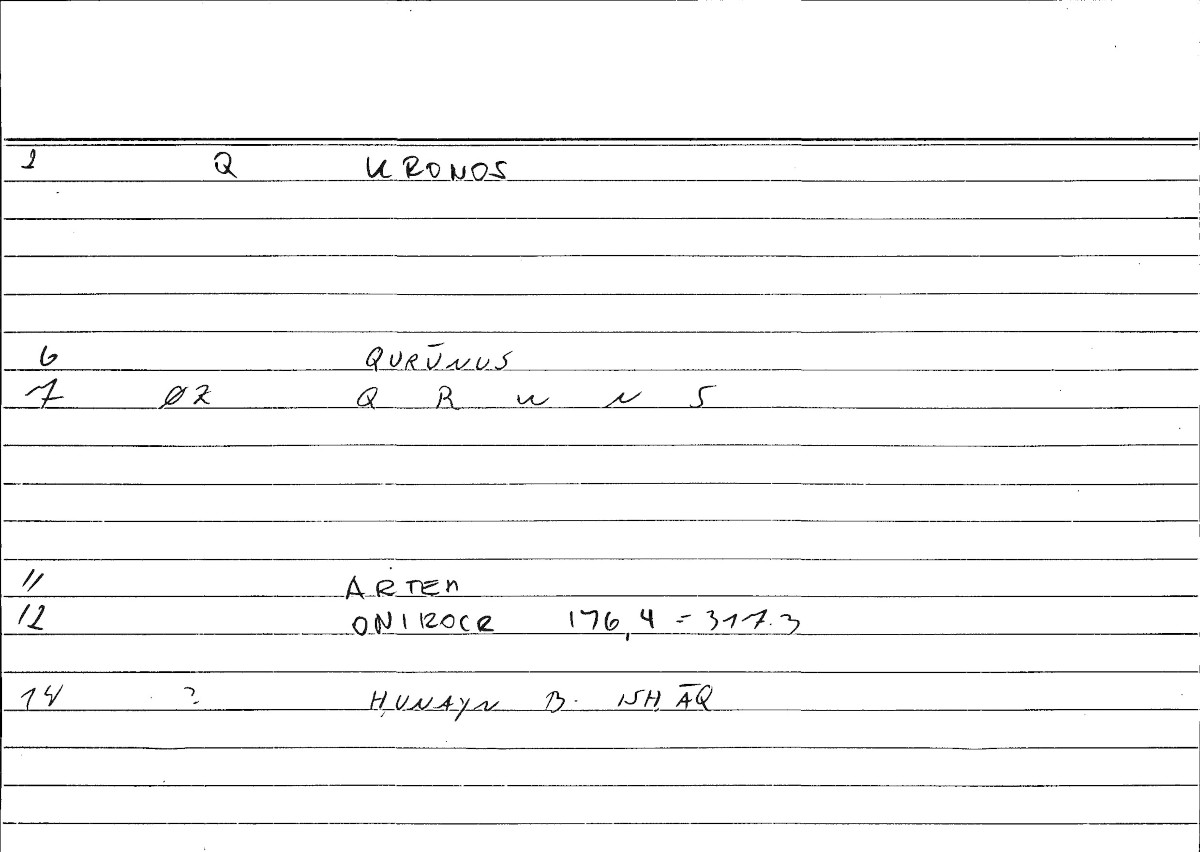 1 Q KRONOS
6 QURŪNUS
7 ØZ Q R W N S
11 ARTEM
12 ONIROCR 176,4 = 317.3
14 ? ḤUNAYN B. ISḤĀQ